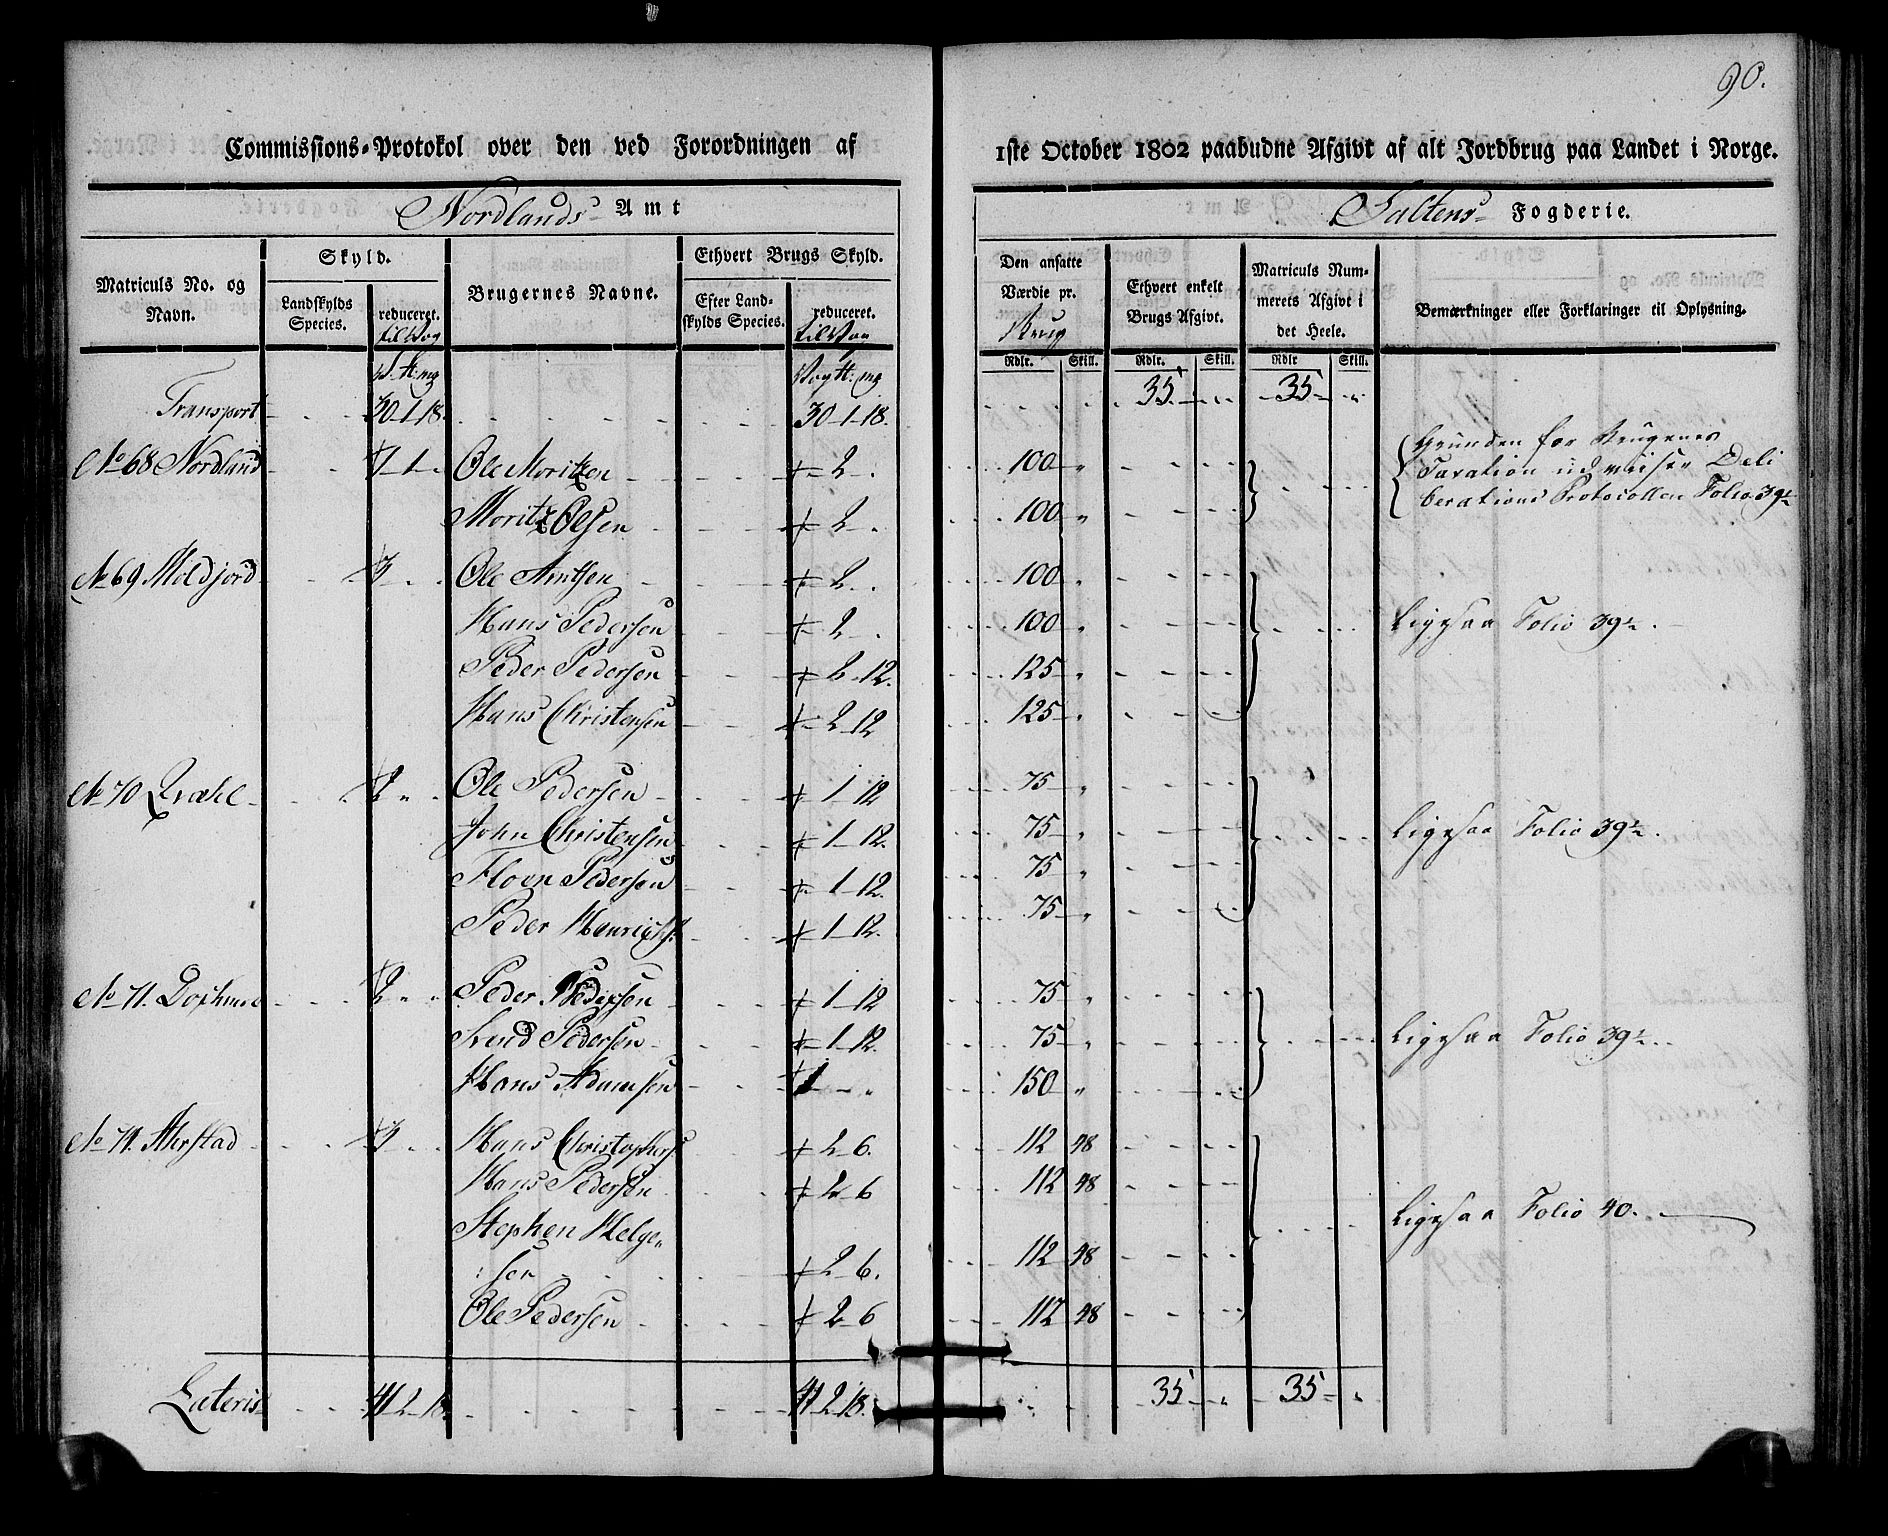 90.
Commissions-Protokol over den ved Forordningen af 1ste October 1802 paabudne Afgivt af alt Jordbrug paa Landet i Norge.
Nordlands Amt
Saltens Fogderie.
Matriculs No. og Navn.
Skyld.
Landskylds Species.
reduceret. til Vog
Brugernes Navne.
Ethvert Brugs Skyld.
Efter Landskylds Species.
reduceret. til Vog
Den ansatte Værdie pr. Brug
Ethvert enkelt Brugs Afgivt.
Matriculs Nummerets Afgivt i det Heele.
Bemærkninger eller Forklaringer til Oplysning.
Rdlr. Skill. Rdlr. Skill. Rdlr Skill.
Transport 30-1-18. 30-1-18. 35 35
No 68 Nordland 1-1- Ole Moritzen 2 100
Moritz Olsen 2 100
Grunden for Brugenes
Taxation udviiser Deli
berations Protocollen Folio 39½
No 69 Moldjord 3 Ole Arntsen 2 100
Hans Pedersen 2 100
Peder Pedersen 2-12. 125
Hans Christensen 2-12 125
Ligesaa Folio 39½.
No 70 Qvahl 2 Ole Pedersen 1-12 75
John Christensen 1-12. 75
Floen Pedersen 1-12. 75
Peder Henrichs. 1-12. 75
Ligesaa Folio 39½.
No 71. 2 Peder Pedersen 1-12 75
Svend Pedersen 1-12. 75
Hans Adamsen 1 150
Ligesaa Folio 39½.
Aherstad 3 Hans Christophers. 2-6. 112 48
Hans Pedersen 2-6 112 48
Stephen Helge-
sen 2-6. 112 48
Ole Pedersen 2-6 112 48
Ligesaa Folio 40.
Lateris 41-2-18. 41-2-18. 35 35